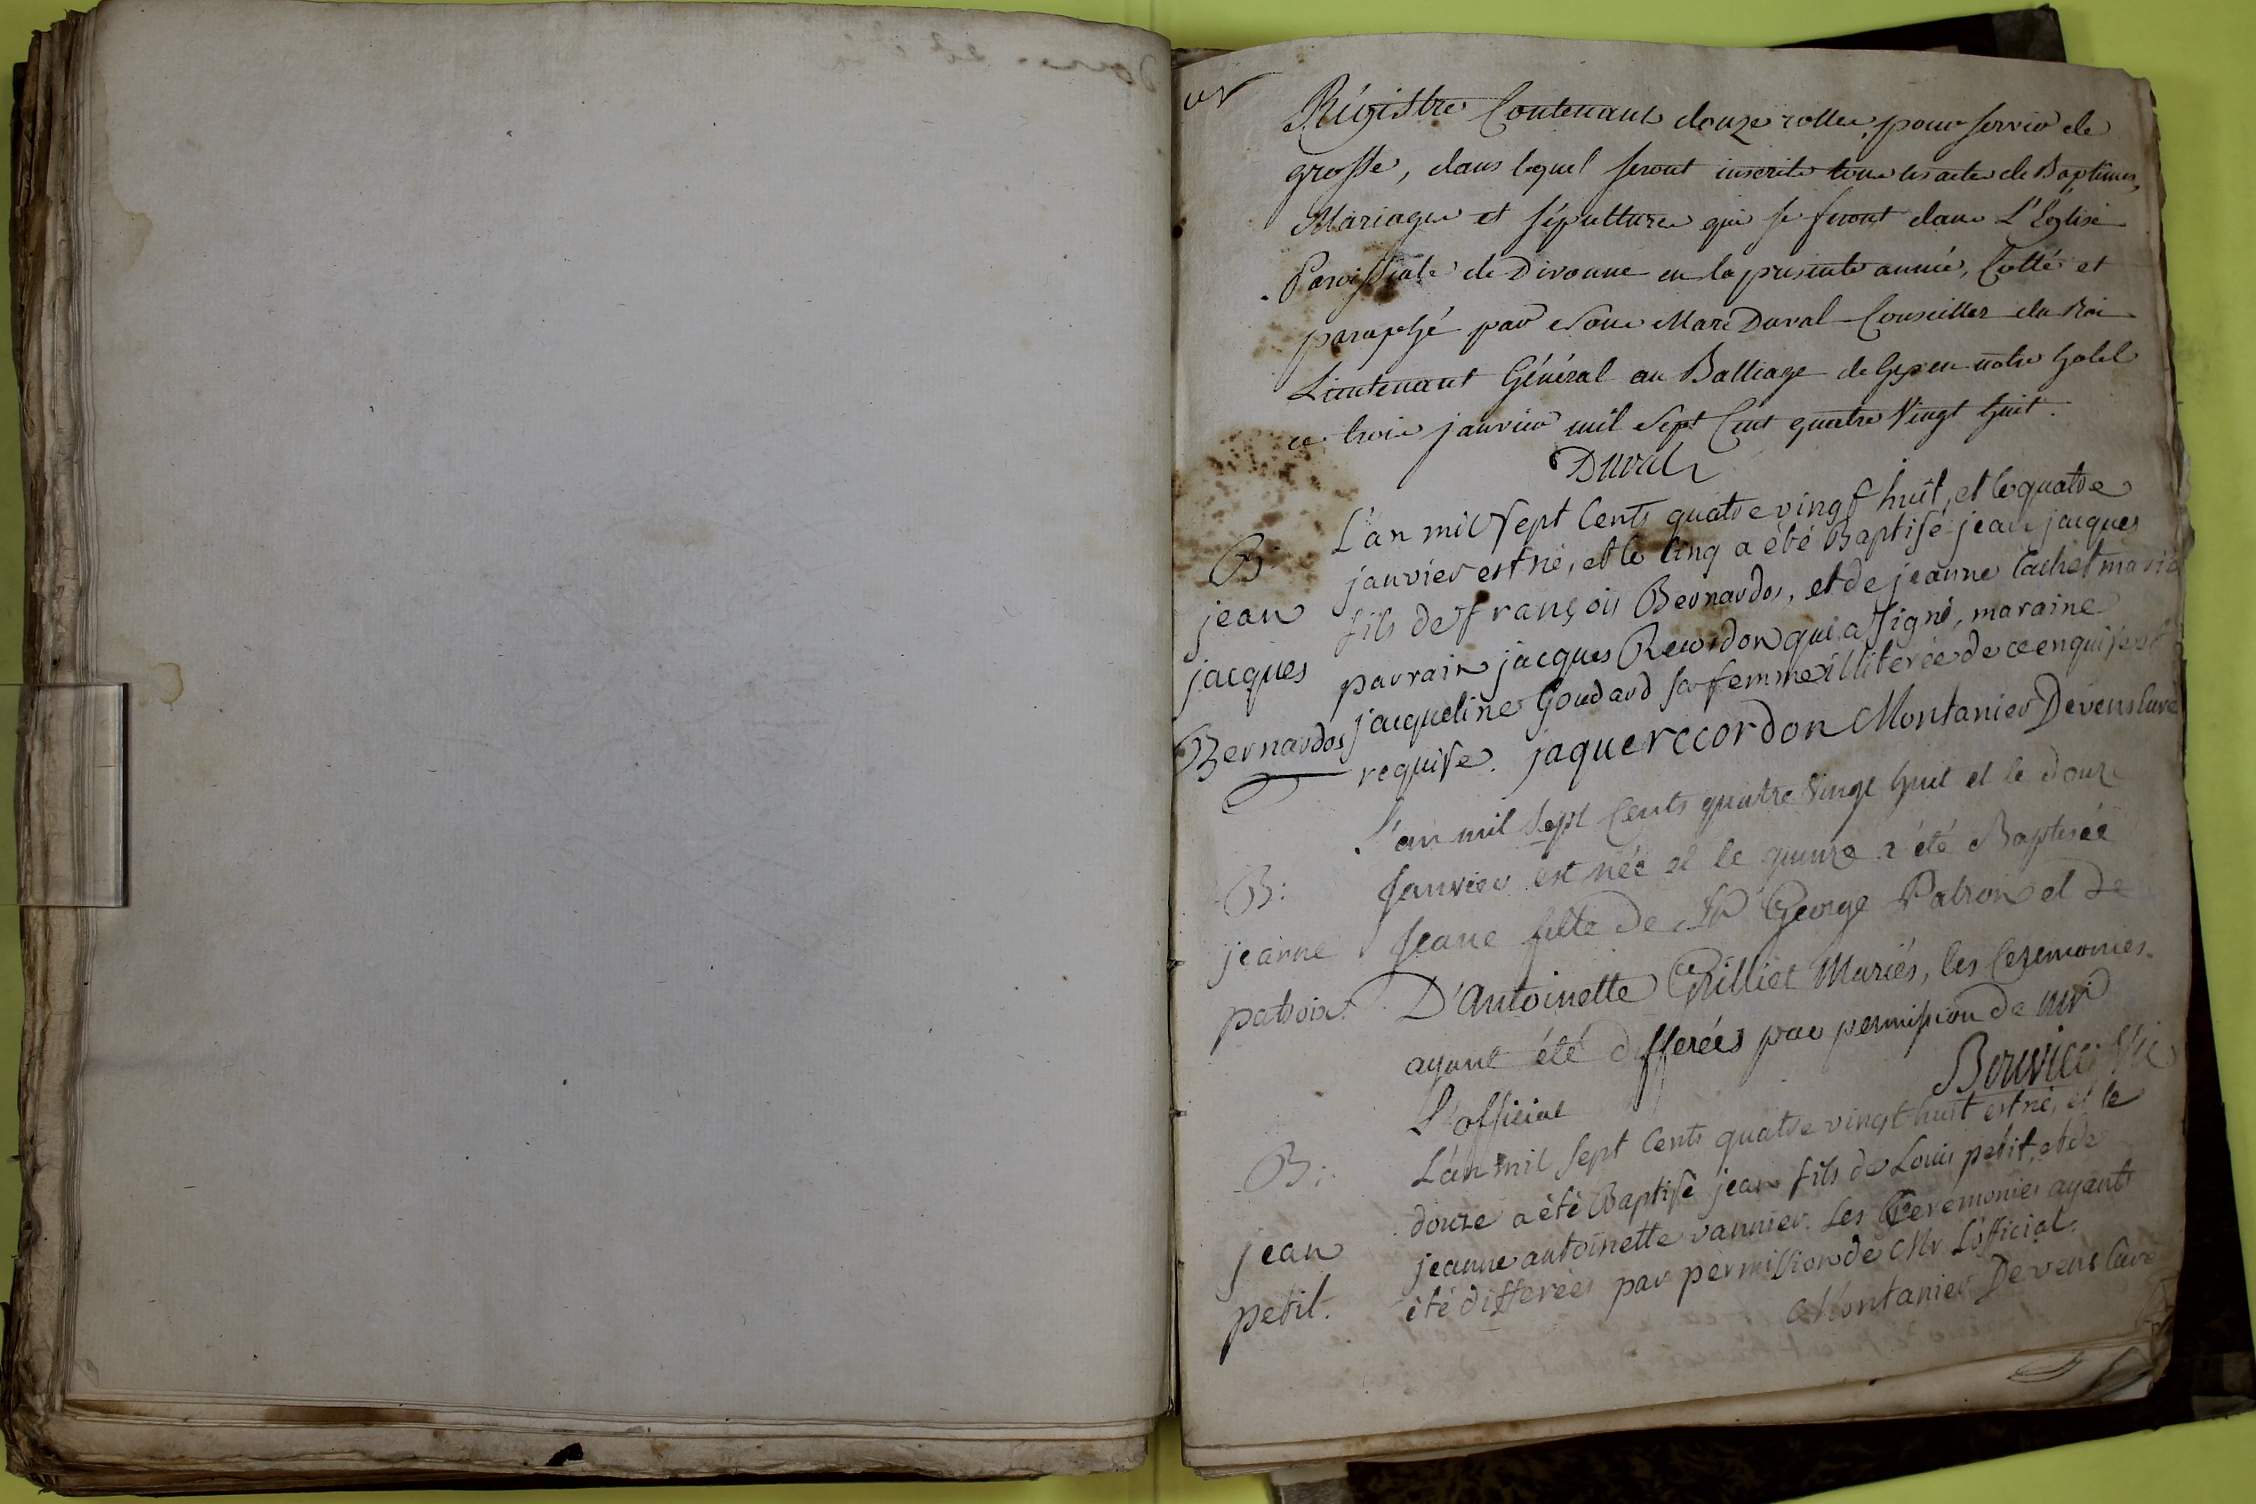 Régistre Contenant douze rolles, pour servir de
grosse, dans lequel seront inscrits tous les actes de Baptêmes,
Mariages et sépultures qui se feront dans L'Eglise
Paroissiale de Divonne en la présente année, Cotté et
paraphé par Nous Marc Duval Conseiller du Roi
Lieutenant Général au Balliage de Gex en notre hotel
ce trois janvier mil Sept Cent quatre Vingt huit.
Duval
B
jean
jacques
Bernardos
L'an mil sept Cents quatre vingt huit, et le quatre
janvier est né, et le cinq a été Baptisé jean jacques
fils de françois Bernardos, et de jeanne Cachet mariés
parrain jacques Recordon qui a signé, maraine
jacqueline Goudard sa femme illiterée de ce enquise et
requise. jaque reccordon Montanier Devens Curé
B:
jeanne
patron
L'an mil Sept Cents quatre Vingt huit et le douze
Janvier est née et le quinze a été Baptisée
Jeane fille de Sr George Patron et de
D'Antoinette Grilliet Mariés, les Ceremonies
ayant été differées par permission de mr
L'official
Bouvier Vic
B:
jean
petit.
L'an mil sept Cents quatre vingt huit est né, et le
douze a été Baptisé jean fils de Louis petit, et de
jeanne antoinette vannier. Les Ceremonies ayants
été differées par permission de Mr L'official.
Montanier Devens Curé